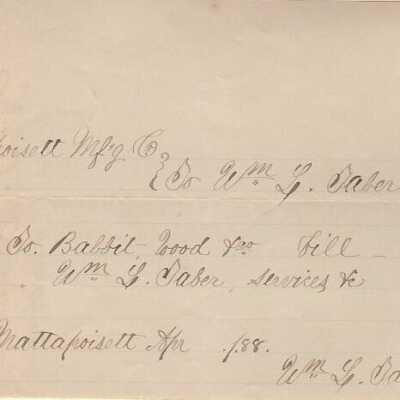 poisett Mf'g Co
To Wm L. Taber
To. Babbit, Wood &co bill -
Wm L. Taber, services &c
Mattapoisett Apr ./88.
Wm L. Ta